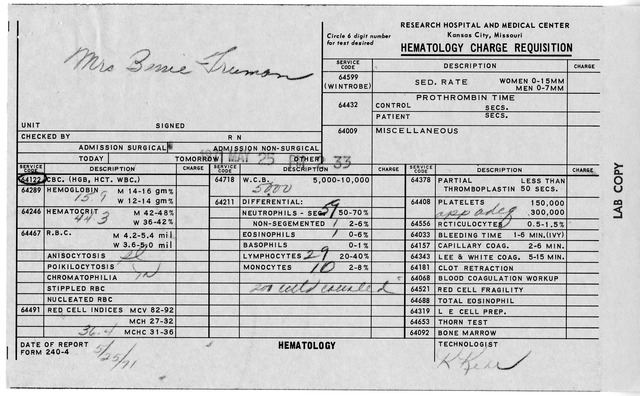 RESEARCH HOSPITAL AND MEDICAL CENTER
Kansas City, Missouri
Circle 6 digit number
for test desired
HEMATOLOGY CHARGE REQUISITION
Mrs Bessie Truman
SERVICE CODE DESCRIPTION CHARGE
64599 (WINTROBE) SED. RATE WOMEN 0-15MM MEN 0-7MM
64432 PROTHROMBIN TIME
CONTROL SECS.
PATIENT SECS.
64009 MISCELLANEOUS
UNIT SIGNED
CHECKED BY R N
ADMISSION SURGICAL ADMISSION NON-SURGICAL
TODAY TOMORROW OTHER
1971 MAY 25 33
SERVICE CODE DESCRIPTION CHARGE
64122 CBC. (HGB, HCT. WBC.)
64289 HEMOGLOBIN M 14-16 gm%
15.9 W 12-14 gm%
64246 HEMATOCRIT M 42-48%
44.3 W 36-42%
64467 R.B.C. M 4.2-5.4 mil
W 3.6-5.0 mil
ANISOCYTOSIS sl
POIKILOCYTOSIS
CHROMATOPHILIA
STIPPLED RBC
NUCLEATED RBC
64491 RED CELL INDICES MCV 82-92
MCH 27-32
36.4 MCHC 31-36
SERVICE CODE DESCRIPTION CHARGE
64718 W.C.B. 5,000-10,000
5000
64211 DIFFERENTIAL:
NEUTROPHILS - SEG 59 50-70%
NON-SEGMENTED 1 2-6%
EOSINOPHILS 1 0-6%
BASOPHILS 0-1%
LYMPHOCYTES 29 20-40%
MONOCYTES 10 2-8%
200 cells counted
SERVICE CODE DESCRIPTION CHARGE
64378 PARTIAL THROMBOPLASTIN LESS THAN 50 SECS.
64408 PLATELETS 150,000
app adeq 300,000
64556 RCTICULOCYTES 0.5-1.5%
64033 BLEEDING TIME 1-6 MIN.(IVY)
64157 CAPILLARY COAG. 2-6 MIN.
64343 LEE & WHITE COAG. 5-15 MIN.
64181 CLOT RETRACTION
64068 BLOOD COAGULATION WORKUP
64521 RED CELL FRAGILITY
64688 TOTAL EOSINOPHIL
64319 L E CELL PREP.
64653 THORN TEST
64092 BONE MARROW
DATE OF REPORT 5/25/71
FORM 240-4
HEMATOLOGY
TECHNOLOGIST
LAB COPY